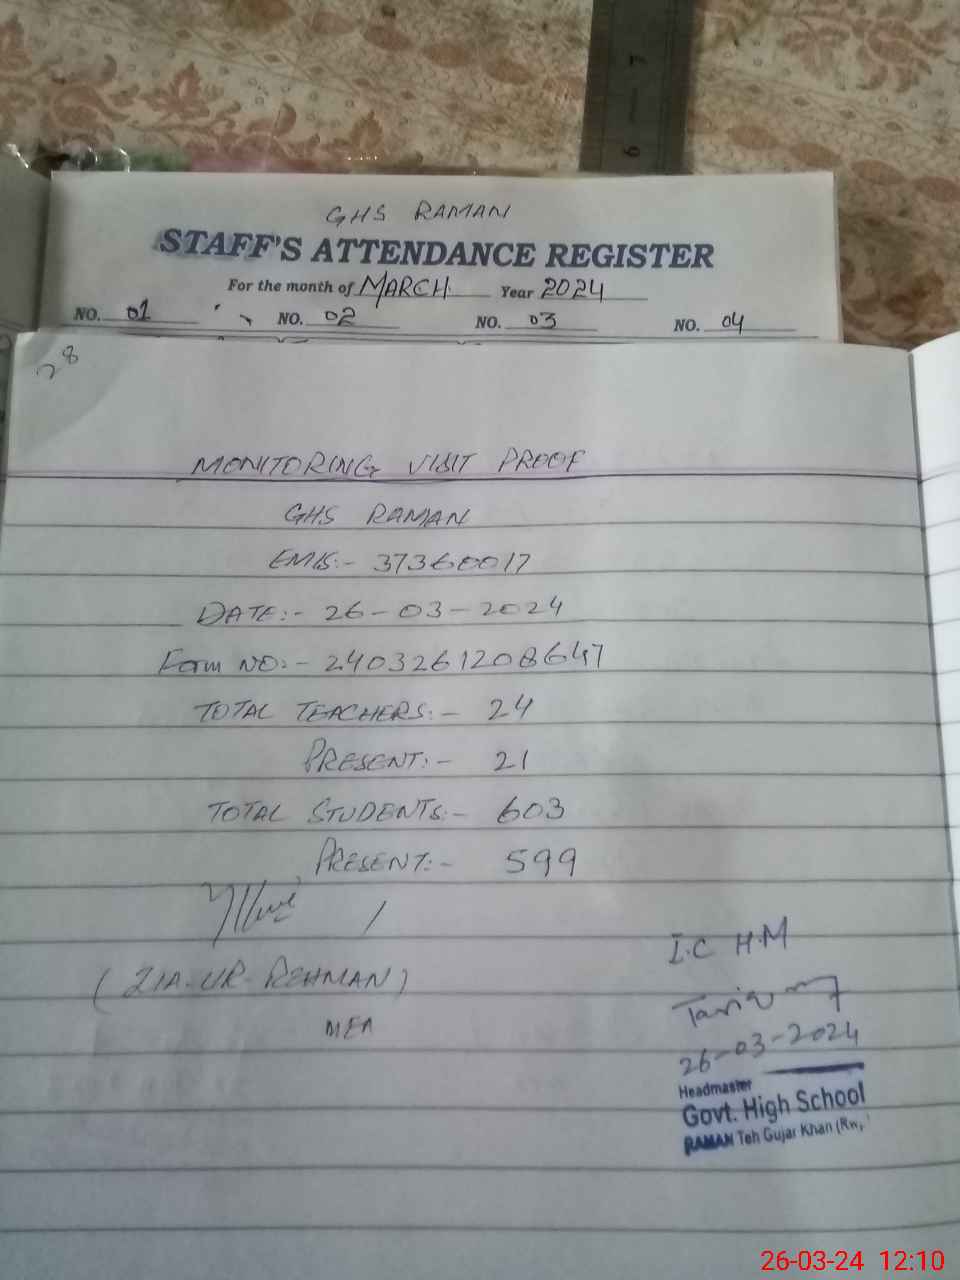 GHS RAMAN
STAFF'S ATTENDANCE REGISTER
For the month of MARCH Year 2024
NO. 01 NO. 02 NO. 03 NO. 04
28
MONITORING VISIT PROOF
GHS RAMAN
EMIS:- 37360017
DATE:- 26-03-2024
Form NO:- 2403261208647
TOTAL TEACHERS:- 24
PRESENT:- 21
TOTAL STUDENTS:- 603
PRESENT:- 599
(ZIA-UR-REHMAN)
MEA
I.C H.M
26-03-2024
Headmaster
Govt. High School
RAMAN Teh Gujar Khan (Rw,
7
6
26-03-24 12:10